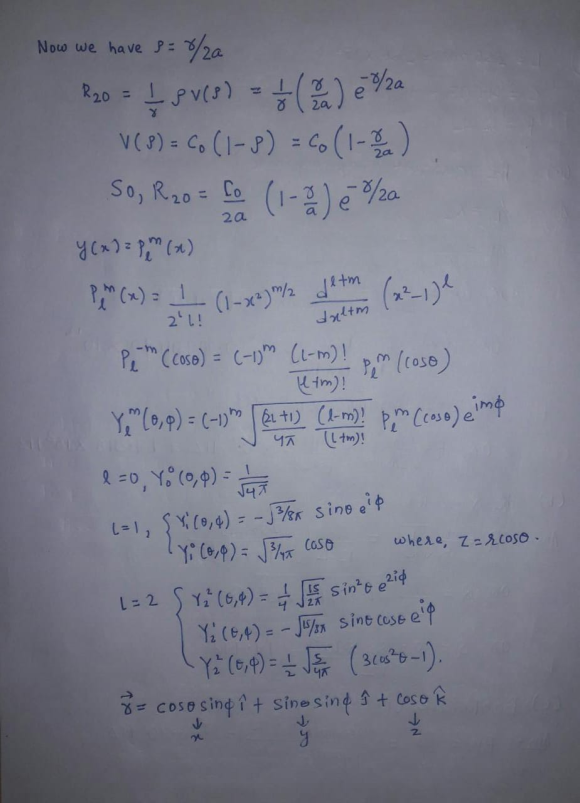 Now we have ρ = r/2a
R₂₀ = 1/r ρ V(ρ) = 1/r (r/2a) e^(-r/2a)
V(ρ) = C₀ (1-ρ) = C₀ (1 - r/2a)
So, R₂₀ = C₀/2a (1 - r/a) e^(-r/2a)
y(x) = Pₗᵐ(x)
Pₗᵐ(x) = 1/(2ˡ l!) (1-x²)^(m/2) d^(l+m)/dx^(l+m) (x²-1)^l
Pₗ^(-m) (cosθ) = (-1)^m (l-m)!/(l+m)! Pₗᵐ (cosθ)
Yₗᵐ(θ,φ) = (-1)^m √((2l+1)/4π (l-m)!/(l+m)!) Pₗᵐ (cosθ) e^(imφ)
l=0, Y₀⁰ (θ,φ) = 1/√4π
l=1, { Y₁¹ (θ,φ) = -√3/8π sinθ e^(iφ)
Y₁⁰ (θ,φ) = √3/4π cosθ where, z = r cosθ.
l=2 { Y₂² (θ,φ) = 1/4 √15/2π sin²θ e^(2iφ)
Y₂¹ (θ,φ) = -√15/8π sinθ cosθ e^(iφ)
Y₂² (θ,φ) = 1/2 √5/4π (3cos²θ-1).
r⃗ = cosθ sinφ î + sinθ sinφ ĵ + cosθ k̂
↓ ↓ ↓
x y z